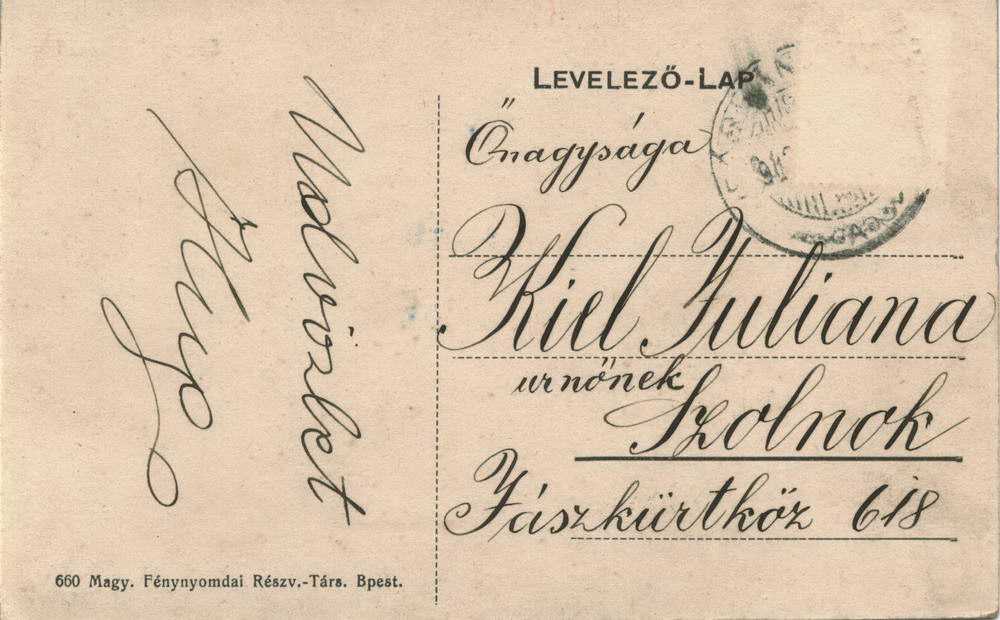 LEVELEZŐ-LAP
Őnagysága
Kiel Juliana
urnőnek
Szolnok
Jászkürtköz 618
Üdvözlet
660 Magy. Fénynyomdai Részv.-Társ. Bpest.